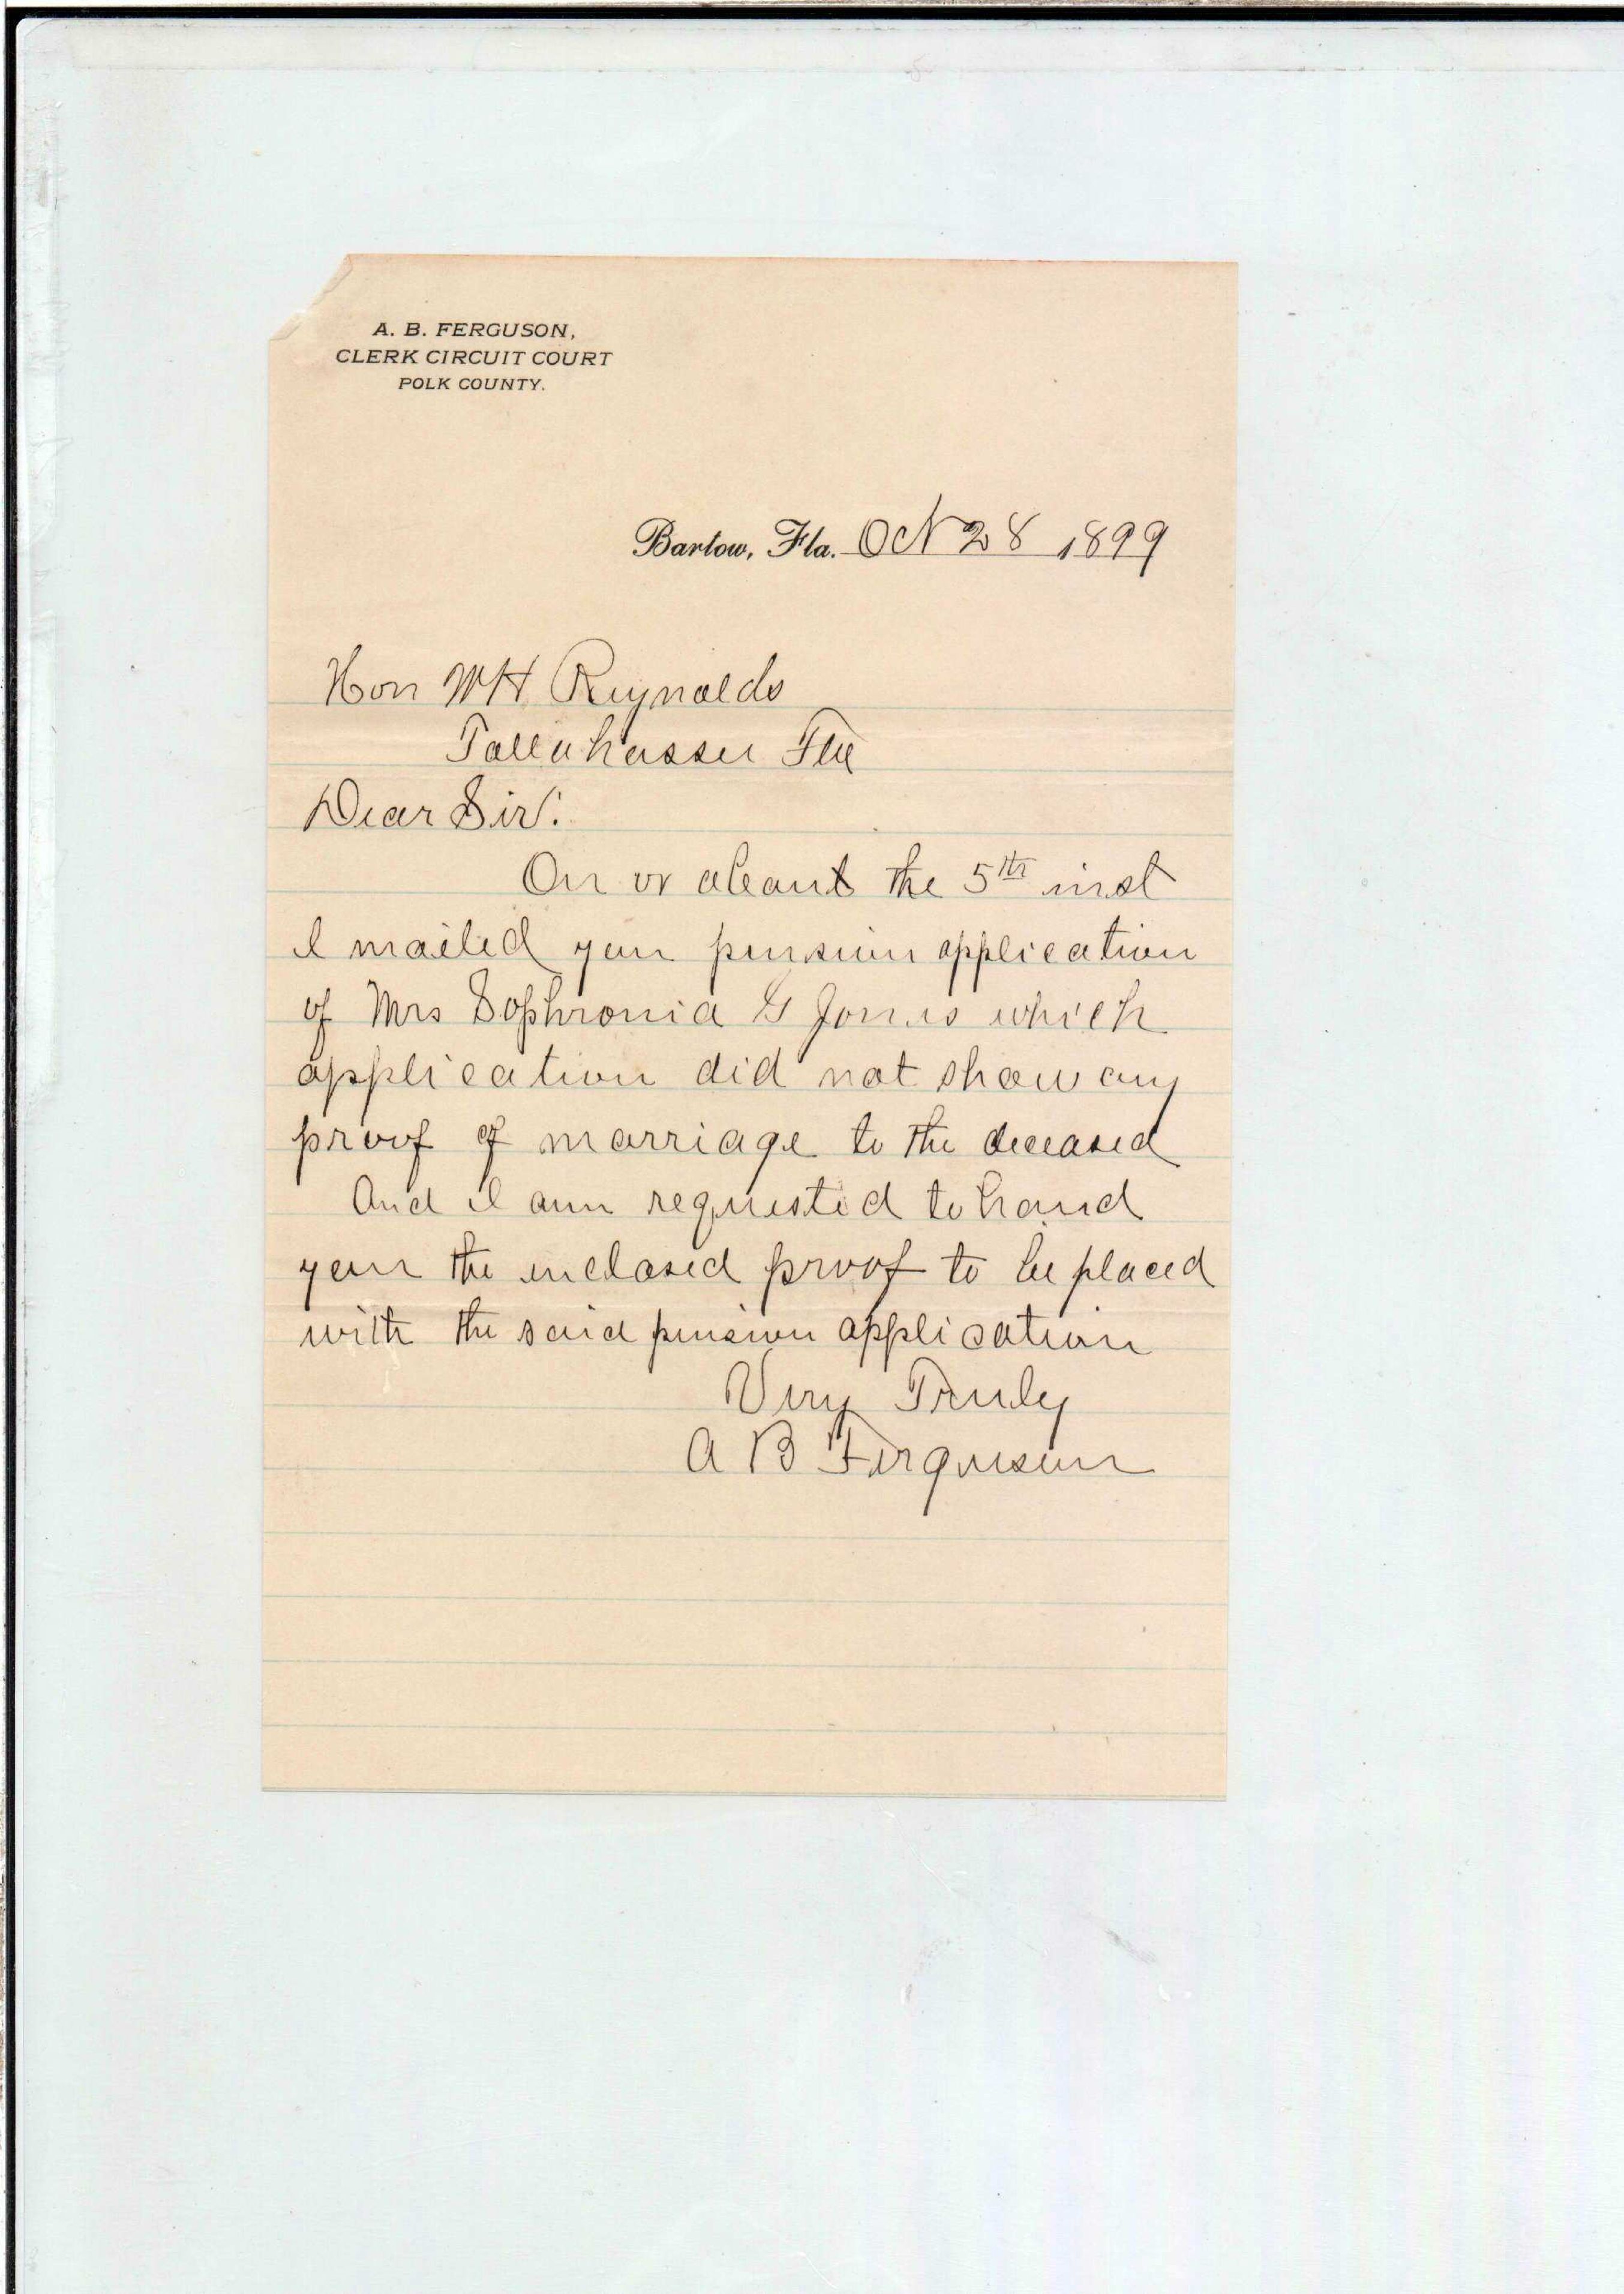 A. B. FERGUSON,
CLERK CIRCUIT COURT
POLK COUNTY.
Bartow, Fla. Oct 28 1899
Hon WH Reynolds
Tallahassee Fla
Dear Sir:
On or about the 5th inst
I mailed you pension application
of Mrs Sophronia G Jones which
application did not show any
proof of marriage to the deceased
And I am requested to hand
you the inclosed proof to be placed
with the said pension application
Very Truly
A B Ferguson